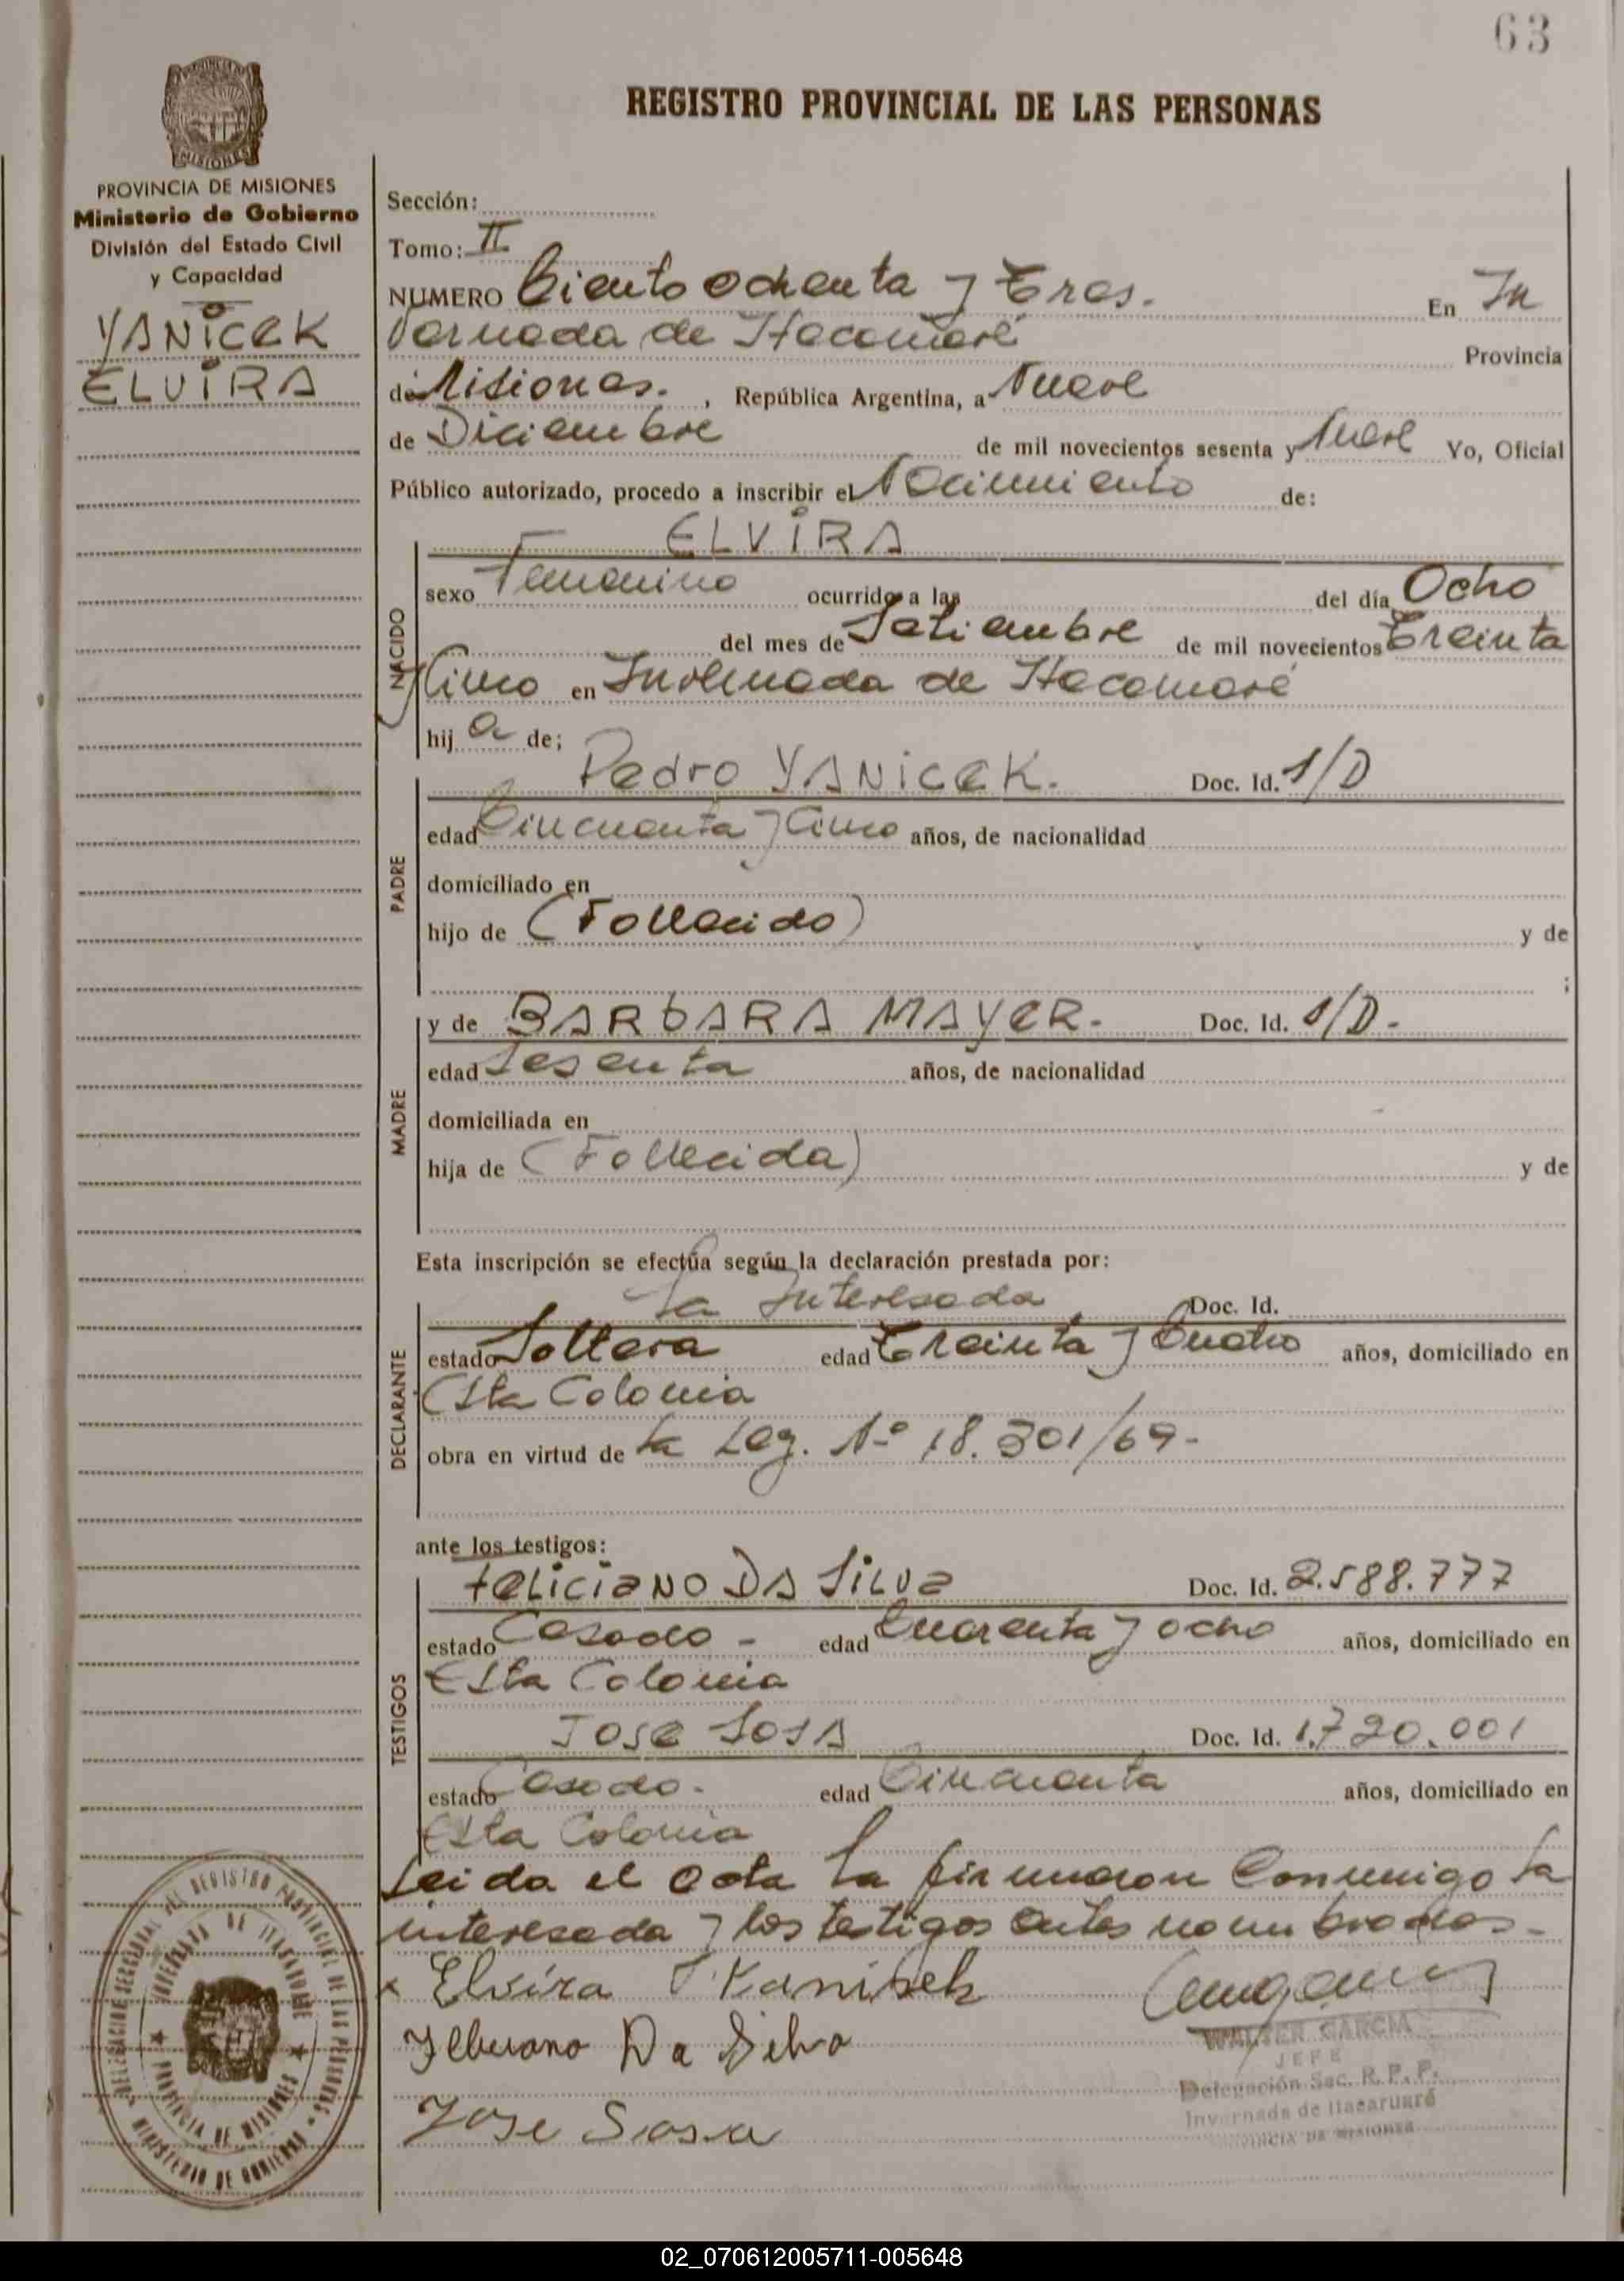 63
REGISTRO PROVINCIAL DE LAS PERSONAS
PROVINCIA DE MISIONES
Ministerio de Gobierno
División del Estado Civil
y Capacidad
YANICEK
ELVIRA
Sección:
Tomo: II
NUMERO Ciento ochenta y Tres. En In
vernada de Itacaruaré Provincia
de Misiones. , República Argentina, a Nueve
de Diciembre de mil novecientos sesenta y Nueve Yo, Oficial
Público autorizado, procedo a inscribir el Nacimiento de:
NACIDO
ELVIRA
sexo Femenino ocurrido a las del día Ocho
del mes de Setiembre de mil novecientos Treinta
y Cinco en Invernada de Itacaruaré
hij a de;
PADRE
Pedro YANICEK. Doc. Id. S/D
edad Cincuenta y Cinco años, de nacionalidad
domiciliado en
hijo de (Fallecido) y de
;
MADRE
y de BARBARA MAYER. Doc. Id. S/D.
edad Sesenta años, de nacionalidad
domiciliada en
hija de (Fallecida) y de
Esta inscripción se efectúa según la declaración prestada por:
DECLARANTE
La Interesada Doc. Id.
estado Soltera edad Treinta y Cuatro años, domiciliado en
Esta Colonia
obra en virtud de la Ley. Nº 18.301/69-
ante los testigos:
TESTIGOS
FELICIANO DA SILVA Doc. Id. 2.588.777
estado Casado - edad Cuarenta y ocho años, domiciliado en
Esta Colonia
JOSE SOSA Doc. Id. 1.720.001
estado Casado. edad Cincuenta años, domiciliado en
Esta Colonia
Leida el acta la firmaron Conmigo la
interesada y los testigos antes nombrados-
x Elvira
Da Silva
Jose Sosa
WALTER GARCIA
JEFE
Delegación Sec. R. P. P.
Invernada de Itacaruaré
PROVINCIA DE MISIONES
DELEGACION SECCIONAL DEL REGISTRO PROVINCIAL DE LAS PERSONAS
INVERNADA DE ITACARUARE
PROVINCIA DE MISIONES
MINISTERIO DE GOBIERNO
02_070612005711-005648